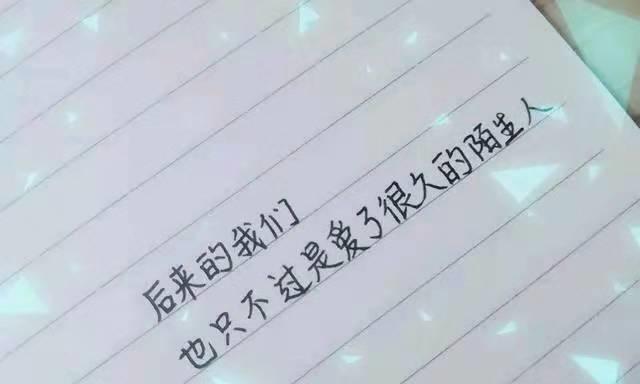 后来的我们
也只不过是爱了很久的陌生人